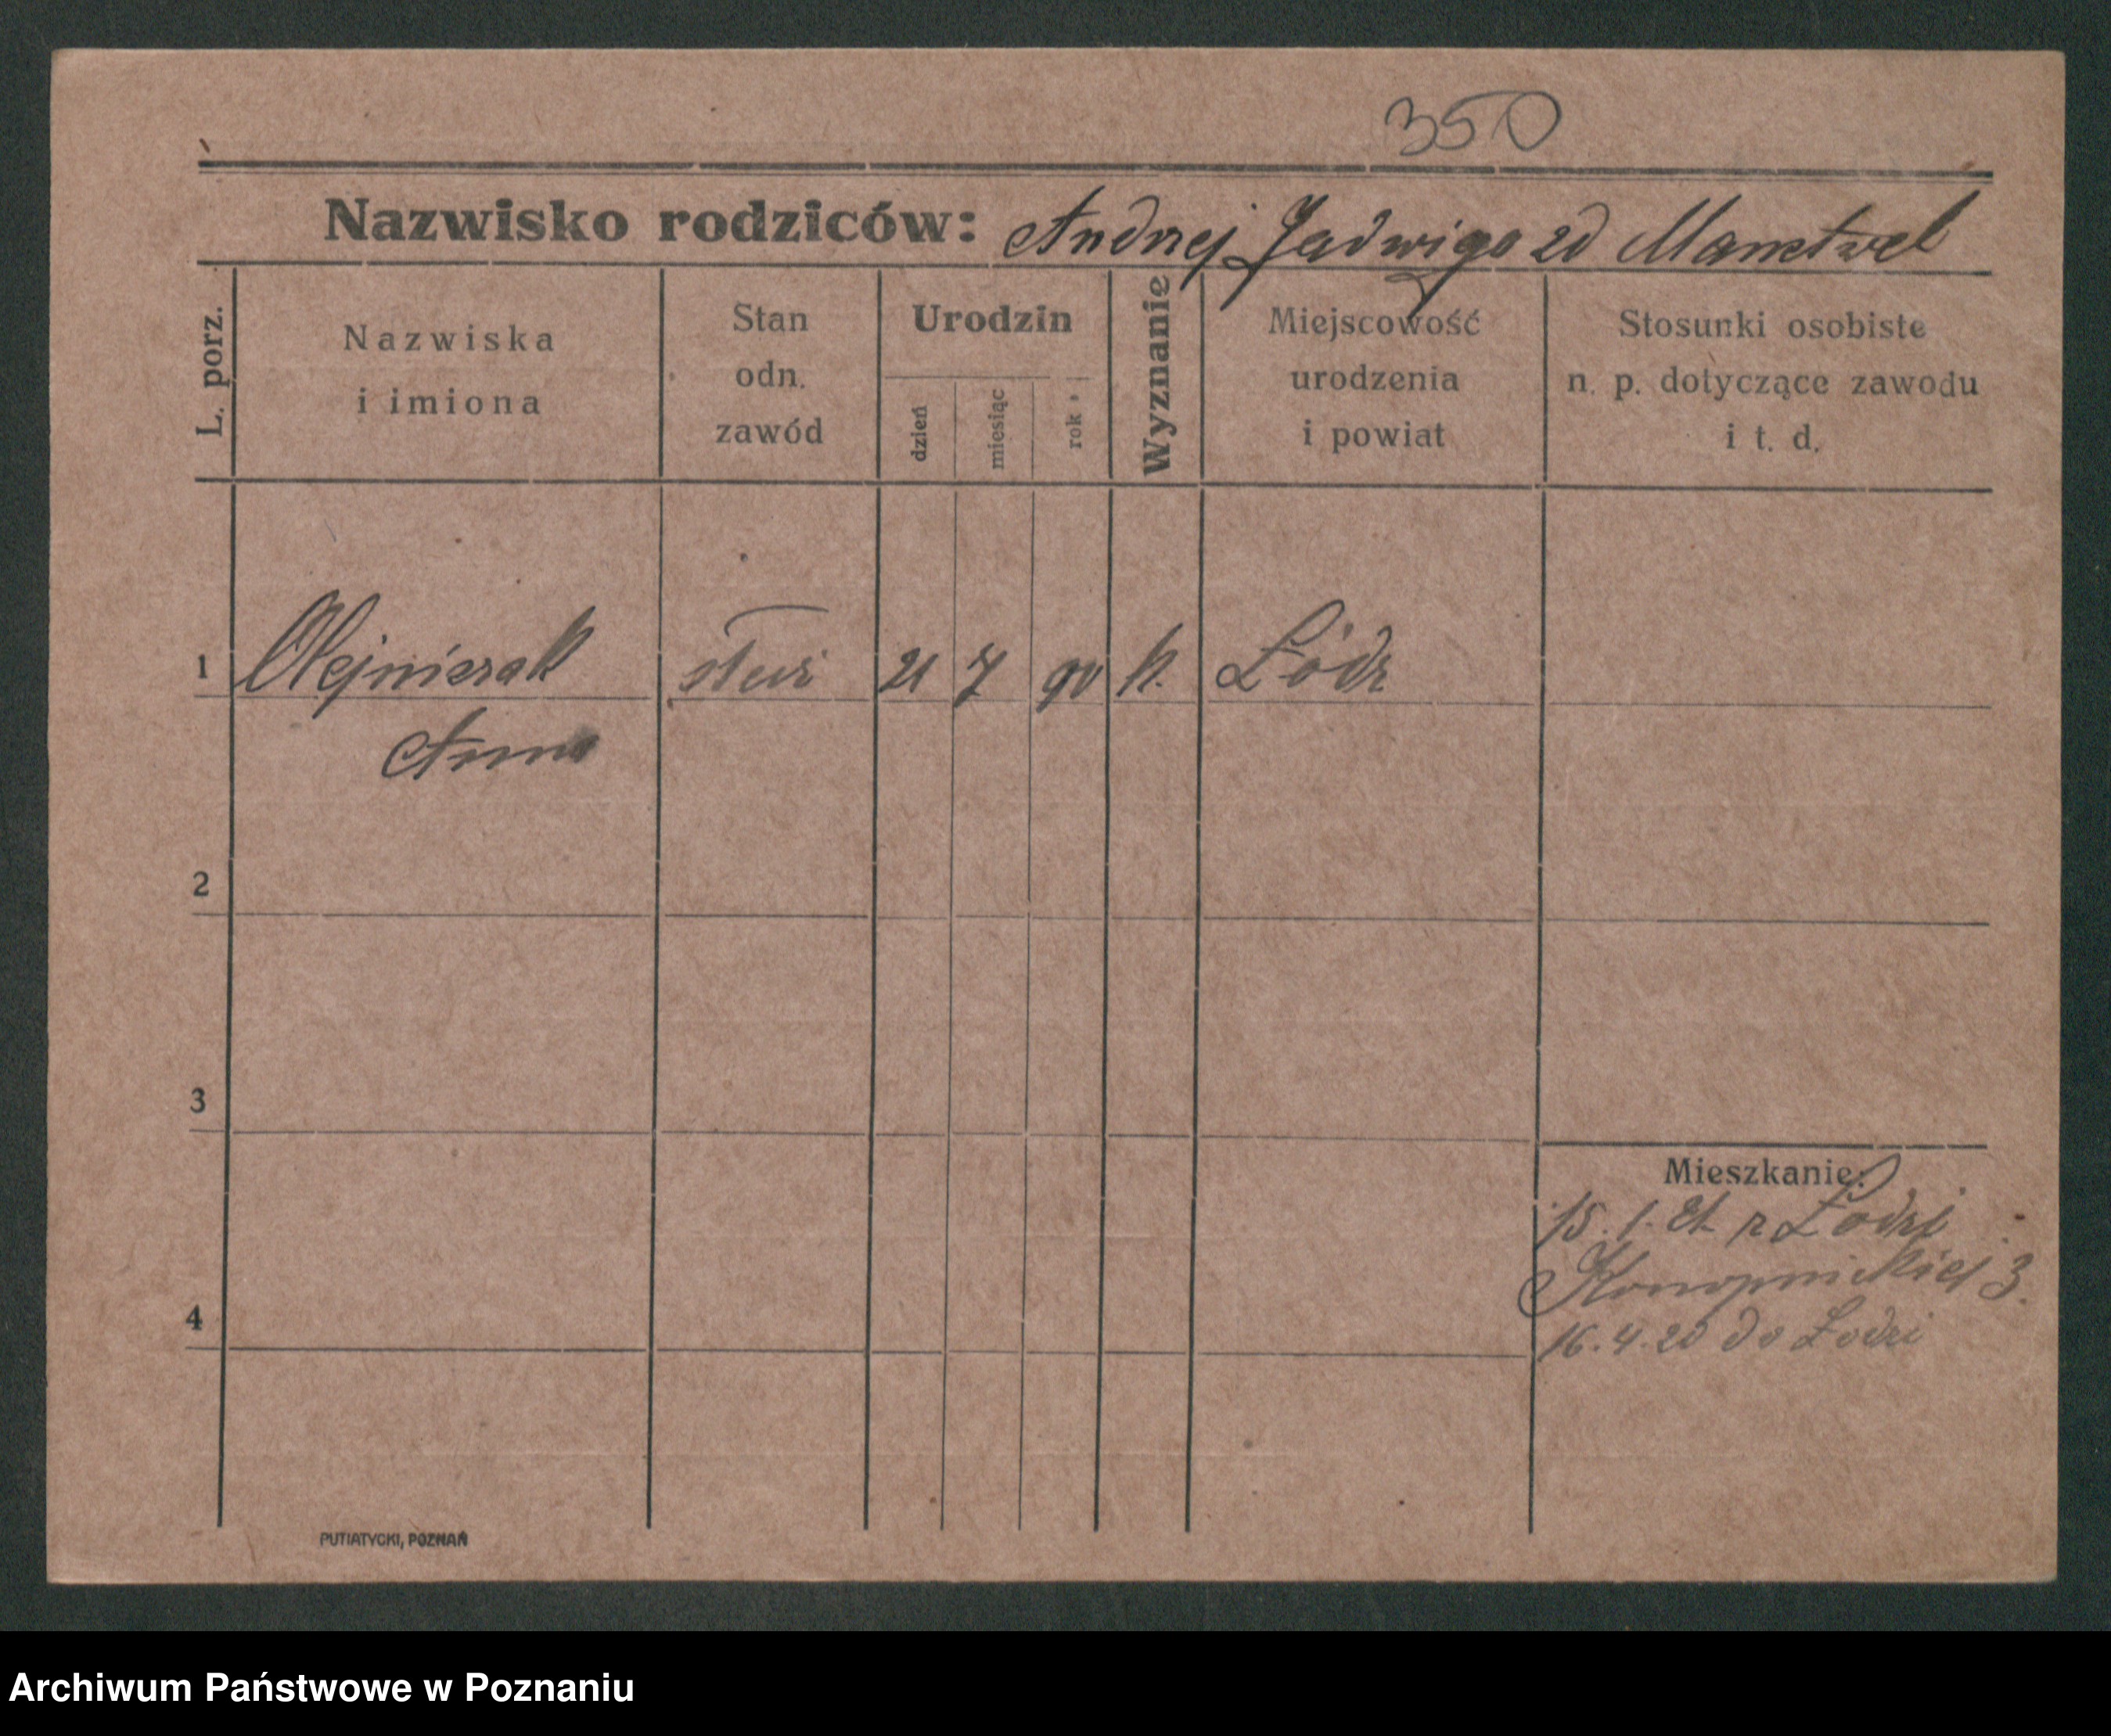 350
Nazwisko rodziców: Andrzej, Jadwiga zd
L. porz.
Nazwiska
i imiona
Stan
odn.
zawód
Urodzin
dzień
miesiąc
rok
Wyznanie
Miejscowość
urodzenia
i powiat
Stosunki osobiste
n. p. dotyczące zawodu
i t. d.
1 Olejniczak 21 7 90 k. Łódź
Anna
2
3
4
Mieszkanie:
15.1. z Łodzi
Konopnickiej 3.
16.4.20 do Łodzi
PUTIATYCKI, POZNAŃ
Archiwum Państwowe w Poznaniu